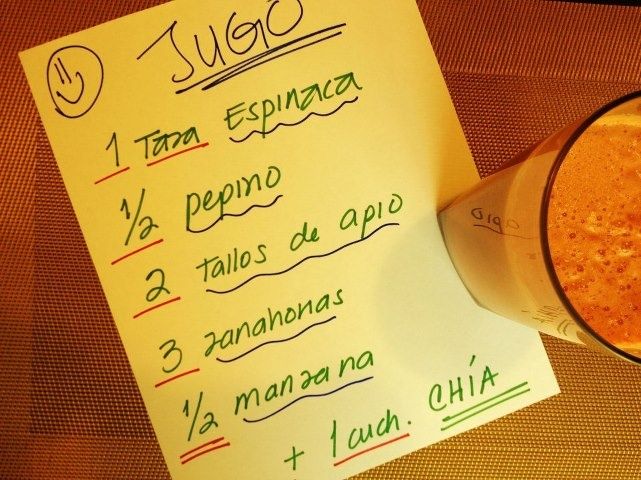 JUGO
1 Taza Espinaca
1/2 pepino
2 tallos de apio
3 zanahorias
1/2 manzana
+ 1 cuch. CHÍA